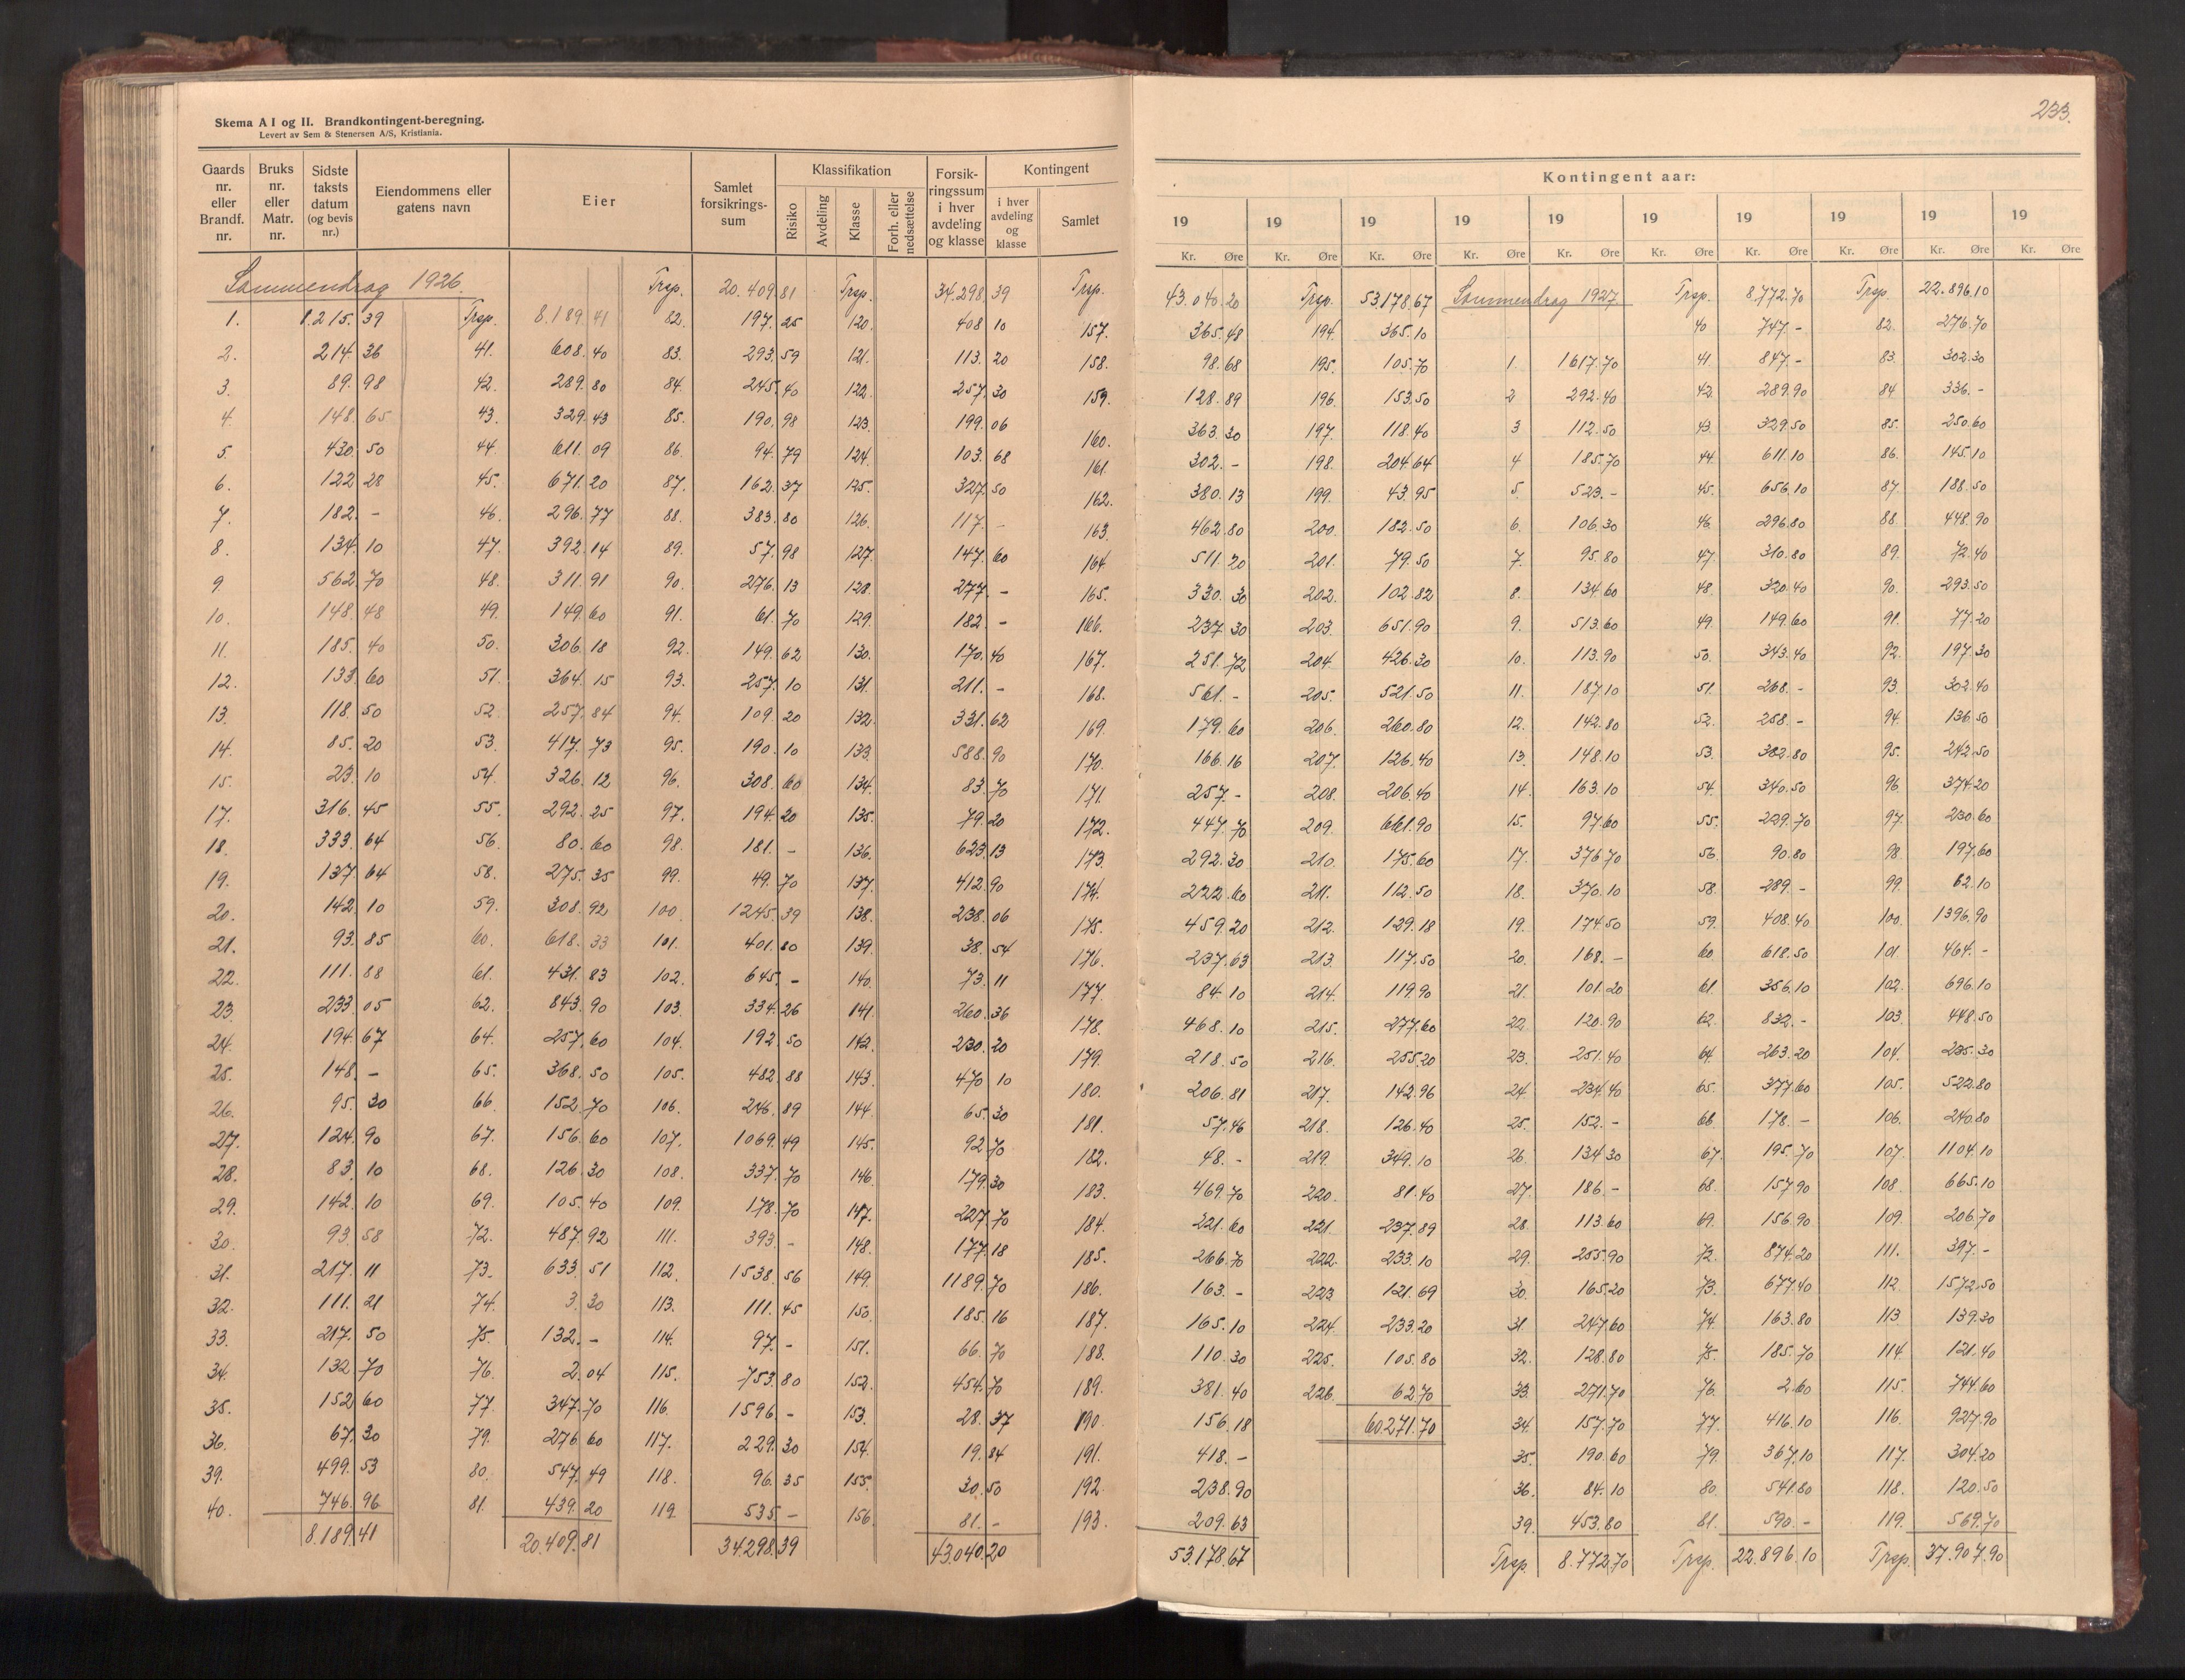 233.
Skema A I og II. Brandkontingent-beregning.
Levert av Sem & Stenersen A/S, Kristiania.
Gaards nr. eller Brandf. nr.
Bruks nr. eller Matr. nr.
Sidste taksts datum (og bevis nr.)
Eiendommens eller gatens navn
Eier
Samlet forsikrings- sum
Klassifikation
Risiko
Avdeling
Klasse
Forh. eller nedsættelse
Forsik- ringssum i hver avdeling og klasse
Kontingent
i hver avdeling og klasse
Samlet
Sammendrag 1926. Trsp. 20.409.81 Trsp. 34.298.39 Trsp.
1. 1.215.39 Trsp. 8.189.41 82. 197.25 120. 408.10 157.
2. 214.36 41. 608.40 83. 293.59 121. 113.20 158.
3. 89.98 42. 289.80 84. 245.40 122. 257.30 159.
4. 148.65 43. 329.43 85. 190.98 123. 199.06 160.
5. 430.50 44. 611.09 86. 94.79 124. 103.68 161.
6. 122.28 45. 671.20 87. 162.37 125. 327.50 162.
7. 182.- 46. 296.77 88. 383.80 126. 117.- 163.
8. 134.10 47. 392.14 89. 57.98 127. 147.60 164.
9 562.70 48. 311.91 90. 276.13 128. 277.- 165.
10. 148.48 49. 149.60 91. 61.70 129. 182.- 166.
11. 185.40 50. 306.18 92. 149.62 130. 170.40 167.
12. 133.60 51. 364.15 93. 257.10 131. 211.- 168.
13. 118.50 52. 257.84 94. 109.20 132. 331.62 169.
14. 85.20 53. 417.73 95. 190.10 133. 588.90 170.
15. 23.10 54. 326.12 96. 308.60 134. 83.70 171.
17. 316.45 55. 292.25 97. 194.20 135. 79.20 172.
18. 333.64 56. 80.60 98. 181.- 136. 623.13 173.
19. 137.64 58. 275.35 99. 49.70 137. 412.90 174.
20. 142.10 59. 308.92 100. 1245.39 138. 238.06 175.
21. 93.85 60. 618.33 101. 401.80 139. 38.54 176.
22. 111.88 61. 431.83 102. 645.- 140. 73.11 177.
23. 233.05 62. 843.90 103. 334.26 141. 260.36 178.
24. 194.67 64. 257.60 104. 192.50 142. 230.20 179.
25. 148.- 65. 368.50 105. 482.88 143. 470.10 180.
26. 95.30 66. 152.70 106. 246.89 144. 65.30 181.
27. 124.90 67. 156.60 107. 1069.49 145. 92.70 182.
28. 83.10 68. 126.30 108. 337.70 146. 179.30 183.
29. 142.10 69. 105.40 109. 178.70 147. 227.70 184.
30. 93.58 72. 487.92 111. 393.- 148. 177.18 185.
31. 217.11 73. 633.51 112. 1538.56 149. 1189.70 186.
32. 111.21 74. 3.30 113. 111.45 150. 185.16 187.
33. 217.50 75. 132.- 114. 97.- 151. 66.70 188.
34. 132.70 76. 2.04 115. 753.80 152. 454.70 189.
35. 152.60 77. 347.70 116. 1596.- 153. 28.37 190.
36. 67.30 79. 276.60 117. 229.30 154. 19.84 191.
39. 499.53 80. 547.49 118. 96.35 155. 30.50 192.
40. 746.96 81. 439.20 119. 535.- 156. 81.- 193.
8.189.41 20.409.81 34.298.39 43.040.20
Kontingent aar:
19 19 19 19 19 19 19 19 19 19
Kr. Øre Kr. Øre Kr. Øre Kr. Øre Kr. Øre Kr. Øre Kr. Øre Kr. Øre Kr. Øre Kr. Øre
43.040.20 Trsp. 53178.67 Sammendrag 1927 Trsp. 8.772.70 Trsp. 22.896.10
365.48 194. 365.10 40 747.- 82. 276.70
98.68 195. 105.70 1. 1617.70 41. 847.- 83. 302.30
128.89 196. 153.50 2 292.40 42. 289.90 84 336.-
363.30 197. 118.40 3 112.50 43. 329.50 85. 250.60
302.- 198. 204.64 4 185.70 44. 611.10 86. 145.10
380.13 199. 43.95 5. 523.- 45. 656.10 87. 188.50
462.80 200. 182.50 6. 106.30 46. 296.80 88. 448.90
511.20 201. 79.50 7. 95.80 47. 310.80 89. 72.40
330.30 202. 102.82 8. 134.60 48. 320.40 90. 293.50
237.30 203. 651.90 9. 513.60 49. 149.60 91. 77.20
251.72 204. 426.30 10. 113.90 50. 343.40 92. 197.30
561.- 205. 521.50 11. 187.10 51. 268.- 93. 302.40
179.60 206. 260.80 12. 142.80 52. 258.- 94. 136.50
166.16 207. 126.40 13. 148.10 53. 382.80 95. 242.50
257.- 208. 206.40 14. 163.10 54. 340.50 96 374.20
447.70 209. 661.90 15. 97.60 55. 229.70 97. 230.60
292.30 210. 175.60 17. 376.70 56. 90.80 98. 197.60
222.60 211. 112.50 18. 370.10 58. 289.- 99. 62.10
459.20 212. 129.18 19. 174.50 59. 408.40 100. 1396.90
237.63 213. 117.50 20. 168.- 60 618.50 101 464.-
84.10 214. 119.90 21. 101.20 61. 356.10 102. 696.10
468.10 215. 277.60 22. 120.90 62. 832.- 103. 448.50
218.50 216. 255.20 23. 251.40 64. 263.20 104. 235.30
206.81 217. 142.96 24. 234.40 65. 377.60 105. 522.80
57.46 218. 126.40 25. 152.- 66 178.- 106. 240.80
48.- 219. 349.10 26. 134.30 67. 195.70 107. 1104.10
469.70 220. 81.40 27. 186.- 68. 157.90 108. 665.10
221.60 221. 237.89 28. 113.60 69. 156.90 109. 206.70
266.70 222. 233.10 29. 255.90 72. 874.20 111. 397.-
163.- 223 121.69 30. 165.20 73. 677.40 112. 1572.50
165.10 224. 233.20 31. 247.60 74. 163.80 113. 139.30
110.30 225. 105.80 32. 128.80 75. 185.70 114. 121.40
381.40 226. 62.70 33. 271.70 76. 2.60 115. 744.60
156.18 60.271.70 34. 157.70 77. 416.10 116. 927.90
418.- 35. 190.60 79. 367.10 117. 304.20
238.90 36. 84.10 80. 541.80 118. 120.50
209.63 39. 453.80 81. 590.- 119. 569.70
53.178.67 Trsp. 8.772.70 Trsp. 22.896.10 Trsp. 37.907.90